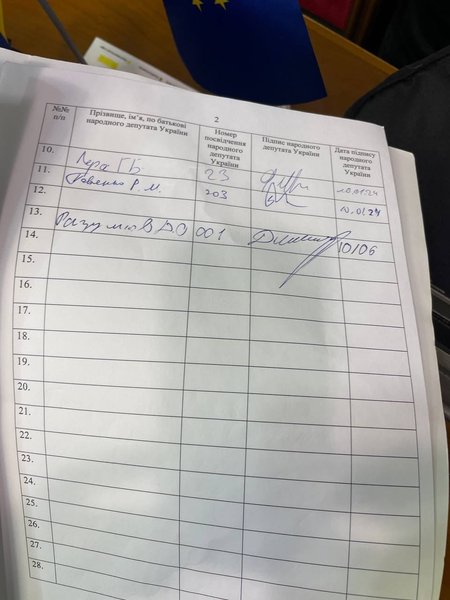 2
№№ Прізвище, ім'я, по батькові Номер Підпис народного Дата підпису
п/п народного депутата України посвідчення депутата України народного
народного депутата
депутата України
України
10. Лера Г Б 23
11. Р. М. 203
12.
13.
14. 001 10/06
15.
16.
17.
18.
19.
20.
21.
22.
23.
24.
25.
26.
27.
28.